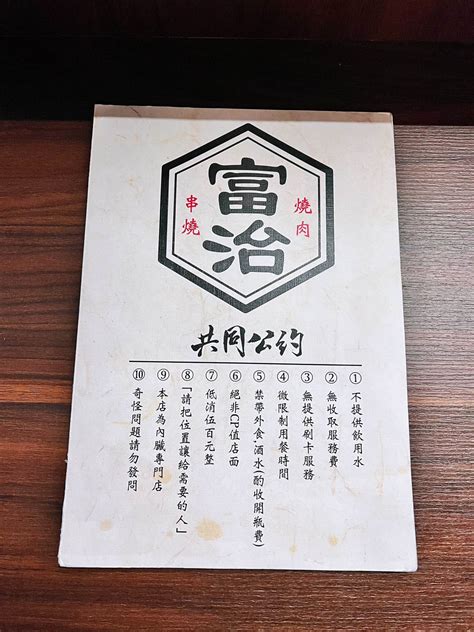 富治
燒肉
串燒
共同公約
①不提供飲用水
②無收取服務費
③無提供刷卡服務
④微限制用餐時間
⑤禁帶外食·酒水(酌收開瓶費)
⑥絕非CP值店面
⑦低消伍百元整
⑧「請把位置讓給需要的人」
⑨本店為內臟專門店
⑩奇怪問題請勿發問